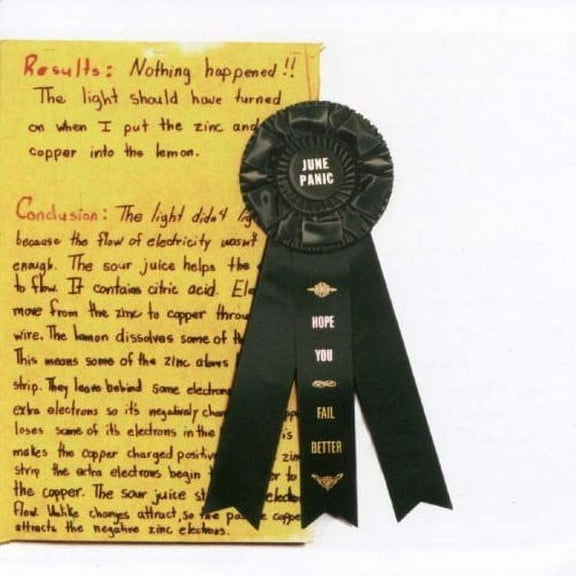 Results: Nothing happened!!
The light should have turned
on when I put the zinc and
copper into the lemon.
Conclusion: The light didn't lig
because the flow of electricity wasn't
enough. The sour juice helps the
to flow. It contains citric acid. Ele
move from the zinc to copper throu
wire. The lemon dissolves some of th
This means some of the zinc atoms
strip. They leave behind some electron
extra electrons so it's negatively char
loses some of its electrons in the is
makes the copper charged positiv zin
strip the extra electrons begin er to
the copper. The sour juice st electro
flow. Unlike charges attract, so the pos coppe
attracts the negative zinc electrons.
JUNE
PANIC
HOPE
YOU
FAIL
BETTER